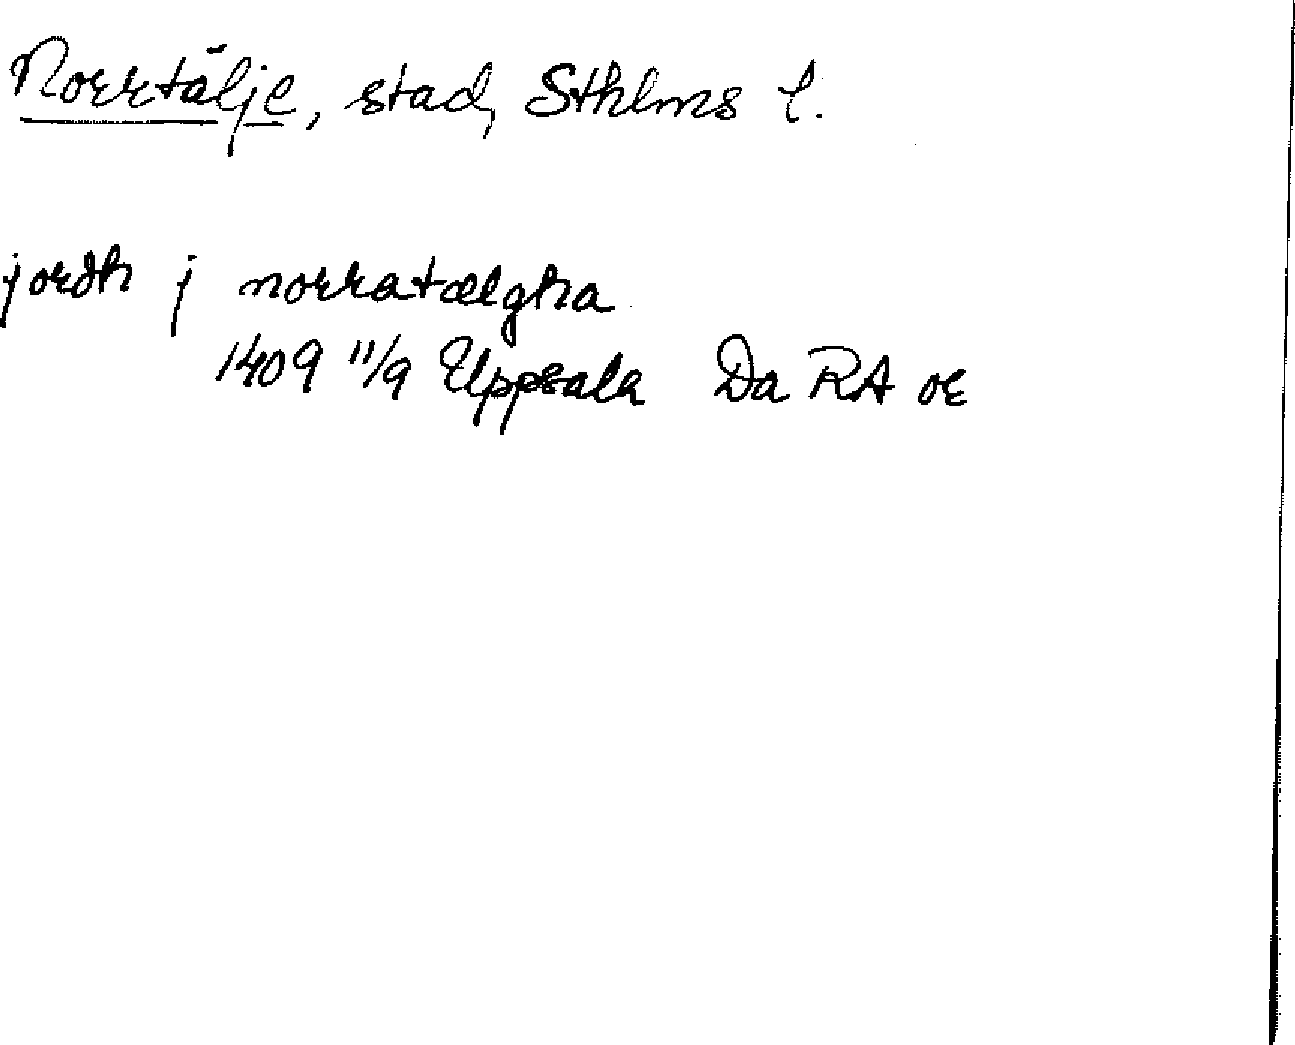 Norrtälje, stad, Sthlms l.
jordh j norratælgha
1409 11/9 Uppsala Da RA or